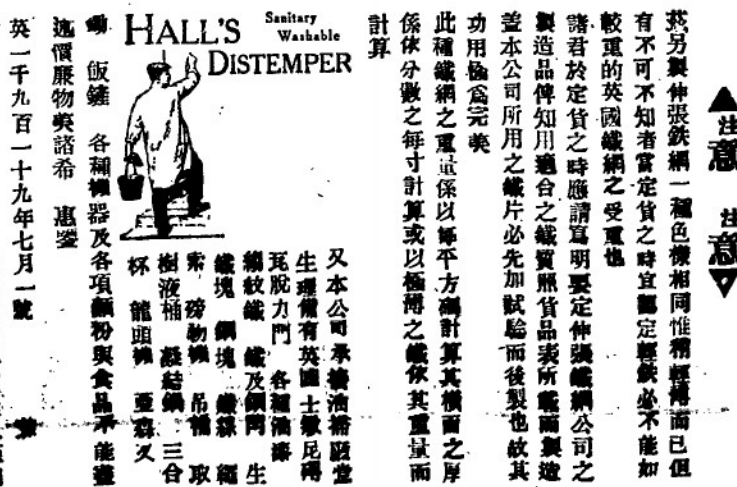 ▲注意 注意▼
英另製伸張鉄網一種色樣相同惟稍輕薄而已但
有不可不知者當定貨之時宜觀定輕鉄必不能如
較重的英國鐵網之受重也
諸君於定貨之時應請寫明要定伸張鐵網公司之
製造品俾知用適合之鐵質照貨品表所載而製造
蓋本公司所用之鐵片必先加試驗而後製也故其
功用極為完美
此種鐵網之重量係以每平方碼計算其橫面之厚
係依分數之每寸計算或以極薄之鐵依其重量而
計算
HALL'S Sanitary
Washable
DISTEMPER
又本公司承接油
生理備有英國士敏尼磚
瓦脫力門 各種油漆
鐵 鐵及鋼門 生
鐵塊 鋼塊
索 磅物機 吊桶 取
樹液桶 凝結鍋 三合
杯 龍頭 亞森久
飯鏟 各種機器及各項顏粉與食品不能盡
述價廉物美諸希 惠鑒
英一千九百一十九年七月一號